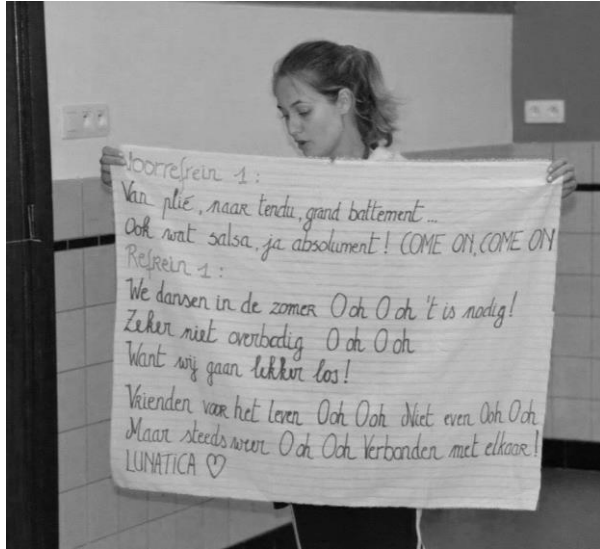 Voorrefrein 1:
Van plié, naar tendu, grand battement...
Ook wat salsa, ja absolument! COME ON, COME ON
Refrein 1:
We dansen in de zomer Ooh Ooh 't is nodig!
Zeker niet overbodig Ooh Ooh
Want wij gaan lekker los!
Vrienden voor het leven Ooh Ooh Niet even Ooh Ooh
Maar steeds weer Ooh Ooh Verbonden met elkaar!
LUNATICA ♡